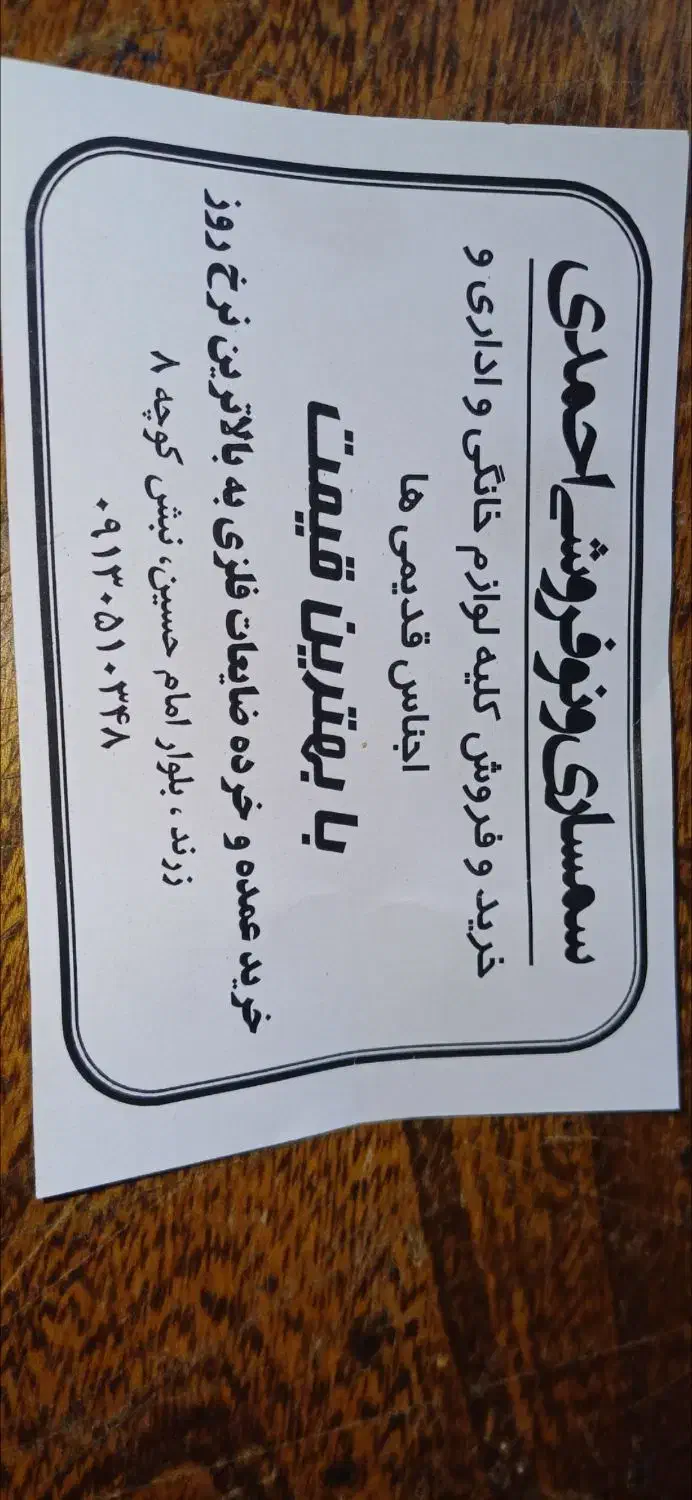 سمساری و نوفروشی احمدی
خرید و فروش کلیه لوازم خانگی و اداری و
اجناس قدیمی ها
با بهترین قیمت
خرید عمده و خرده ضایعات فلزی به بالاترین نرخ روز
زرند ، بلوار امام حسین، نبش کوچه ۸
۰۹۱۳۰۵۱۰۳۴۸